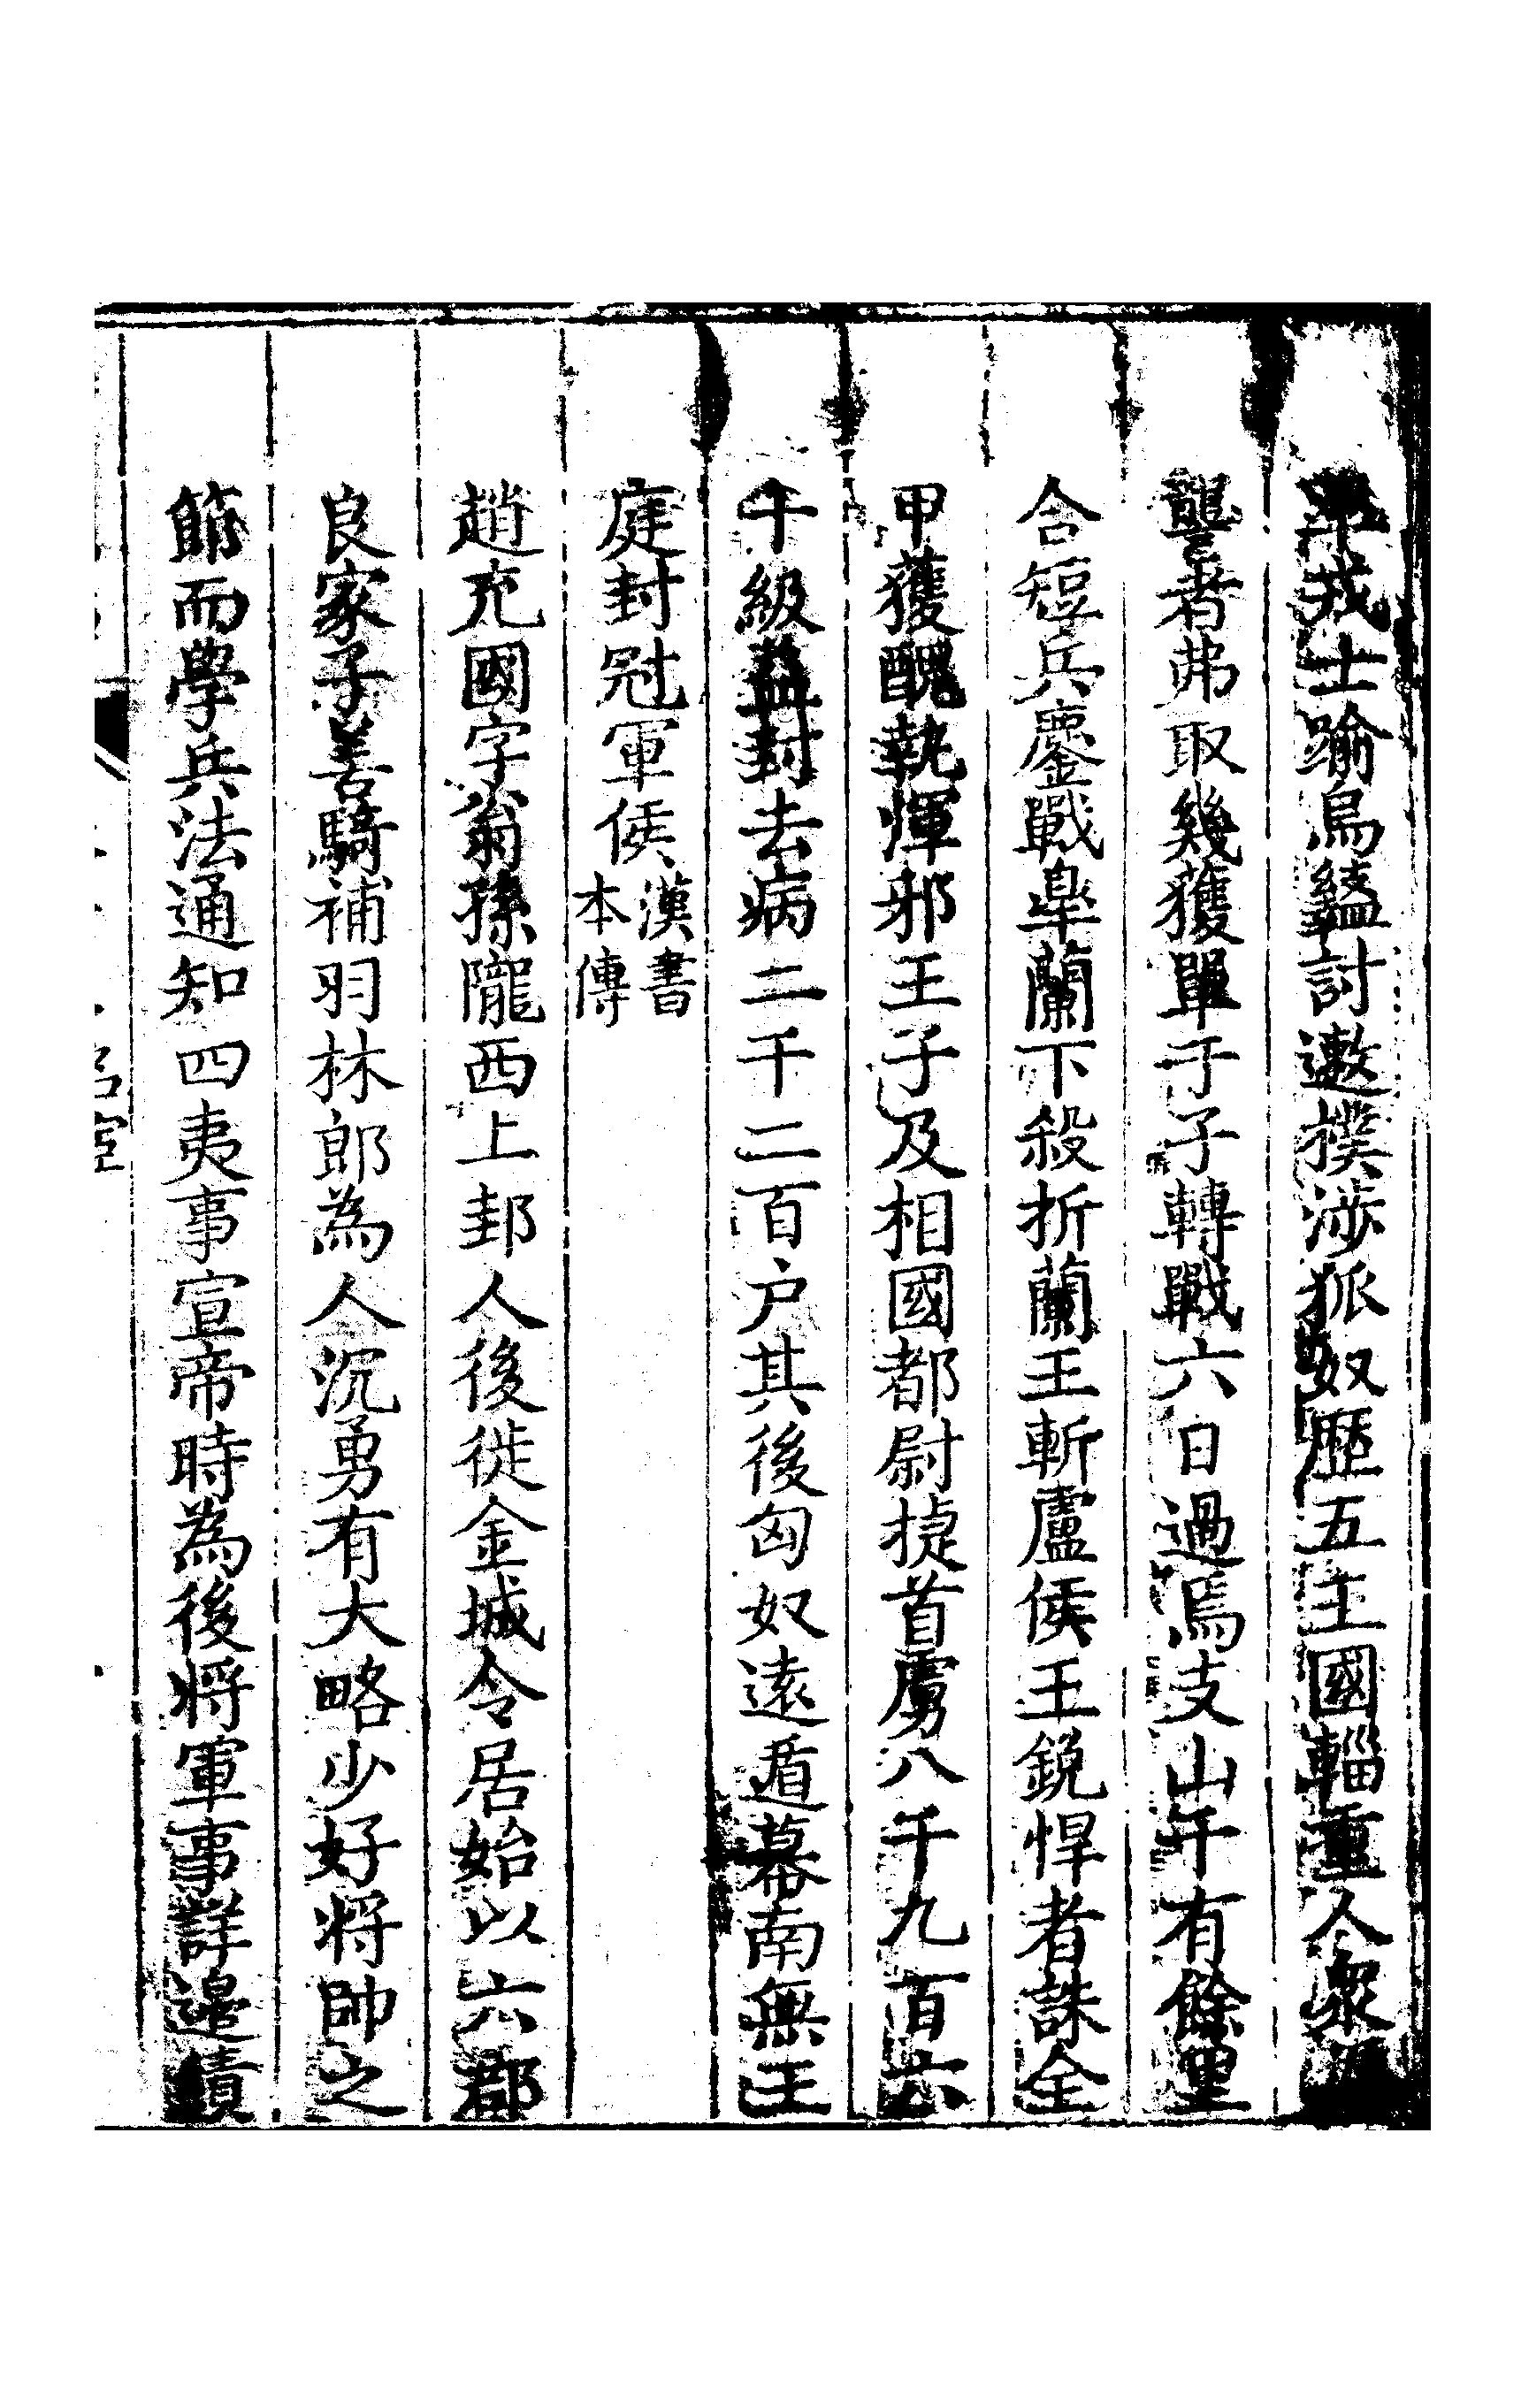 率戎士踰烏盭討遬撲涉狐奴歷五王國輜重人衆
讋者弗取幾獲單于子轉戰六日過焉支山千有餘里
合短兵鏖戰皐蘭下殺折蘭王斬盧侯王銳悍者誅全
甲獲醜執渾邪王子及相國都尉捷首虜八千九百六
千級益封去病二千二百户其後匈奴遠遁幕南無王
庭封冠軍侯漢書
本傳
趙充國字翁孫隴西上邽人後徙金城令居始以六郡
良家子善騎補羽林郎為人沉勇有大略少好將帥之
節而學兵法通知四夷事宣帝時為後將軍事詳邊績